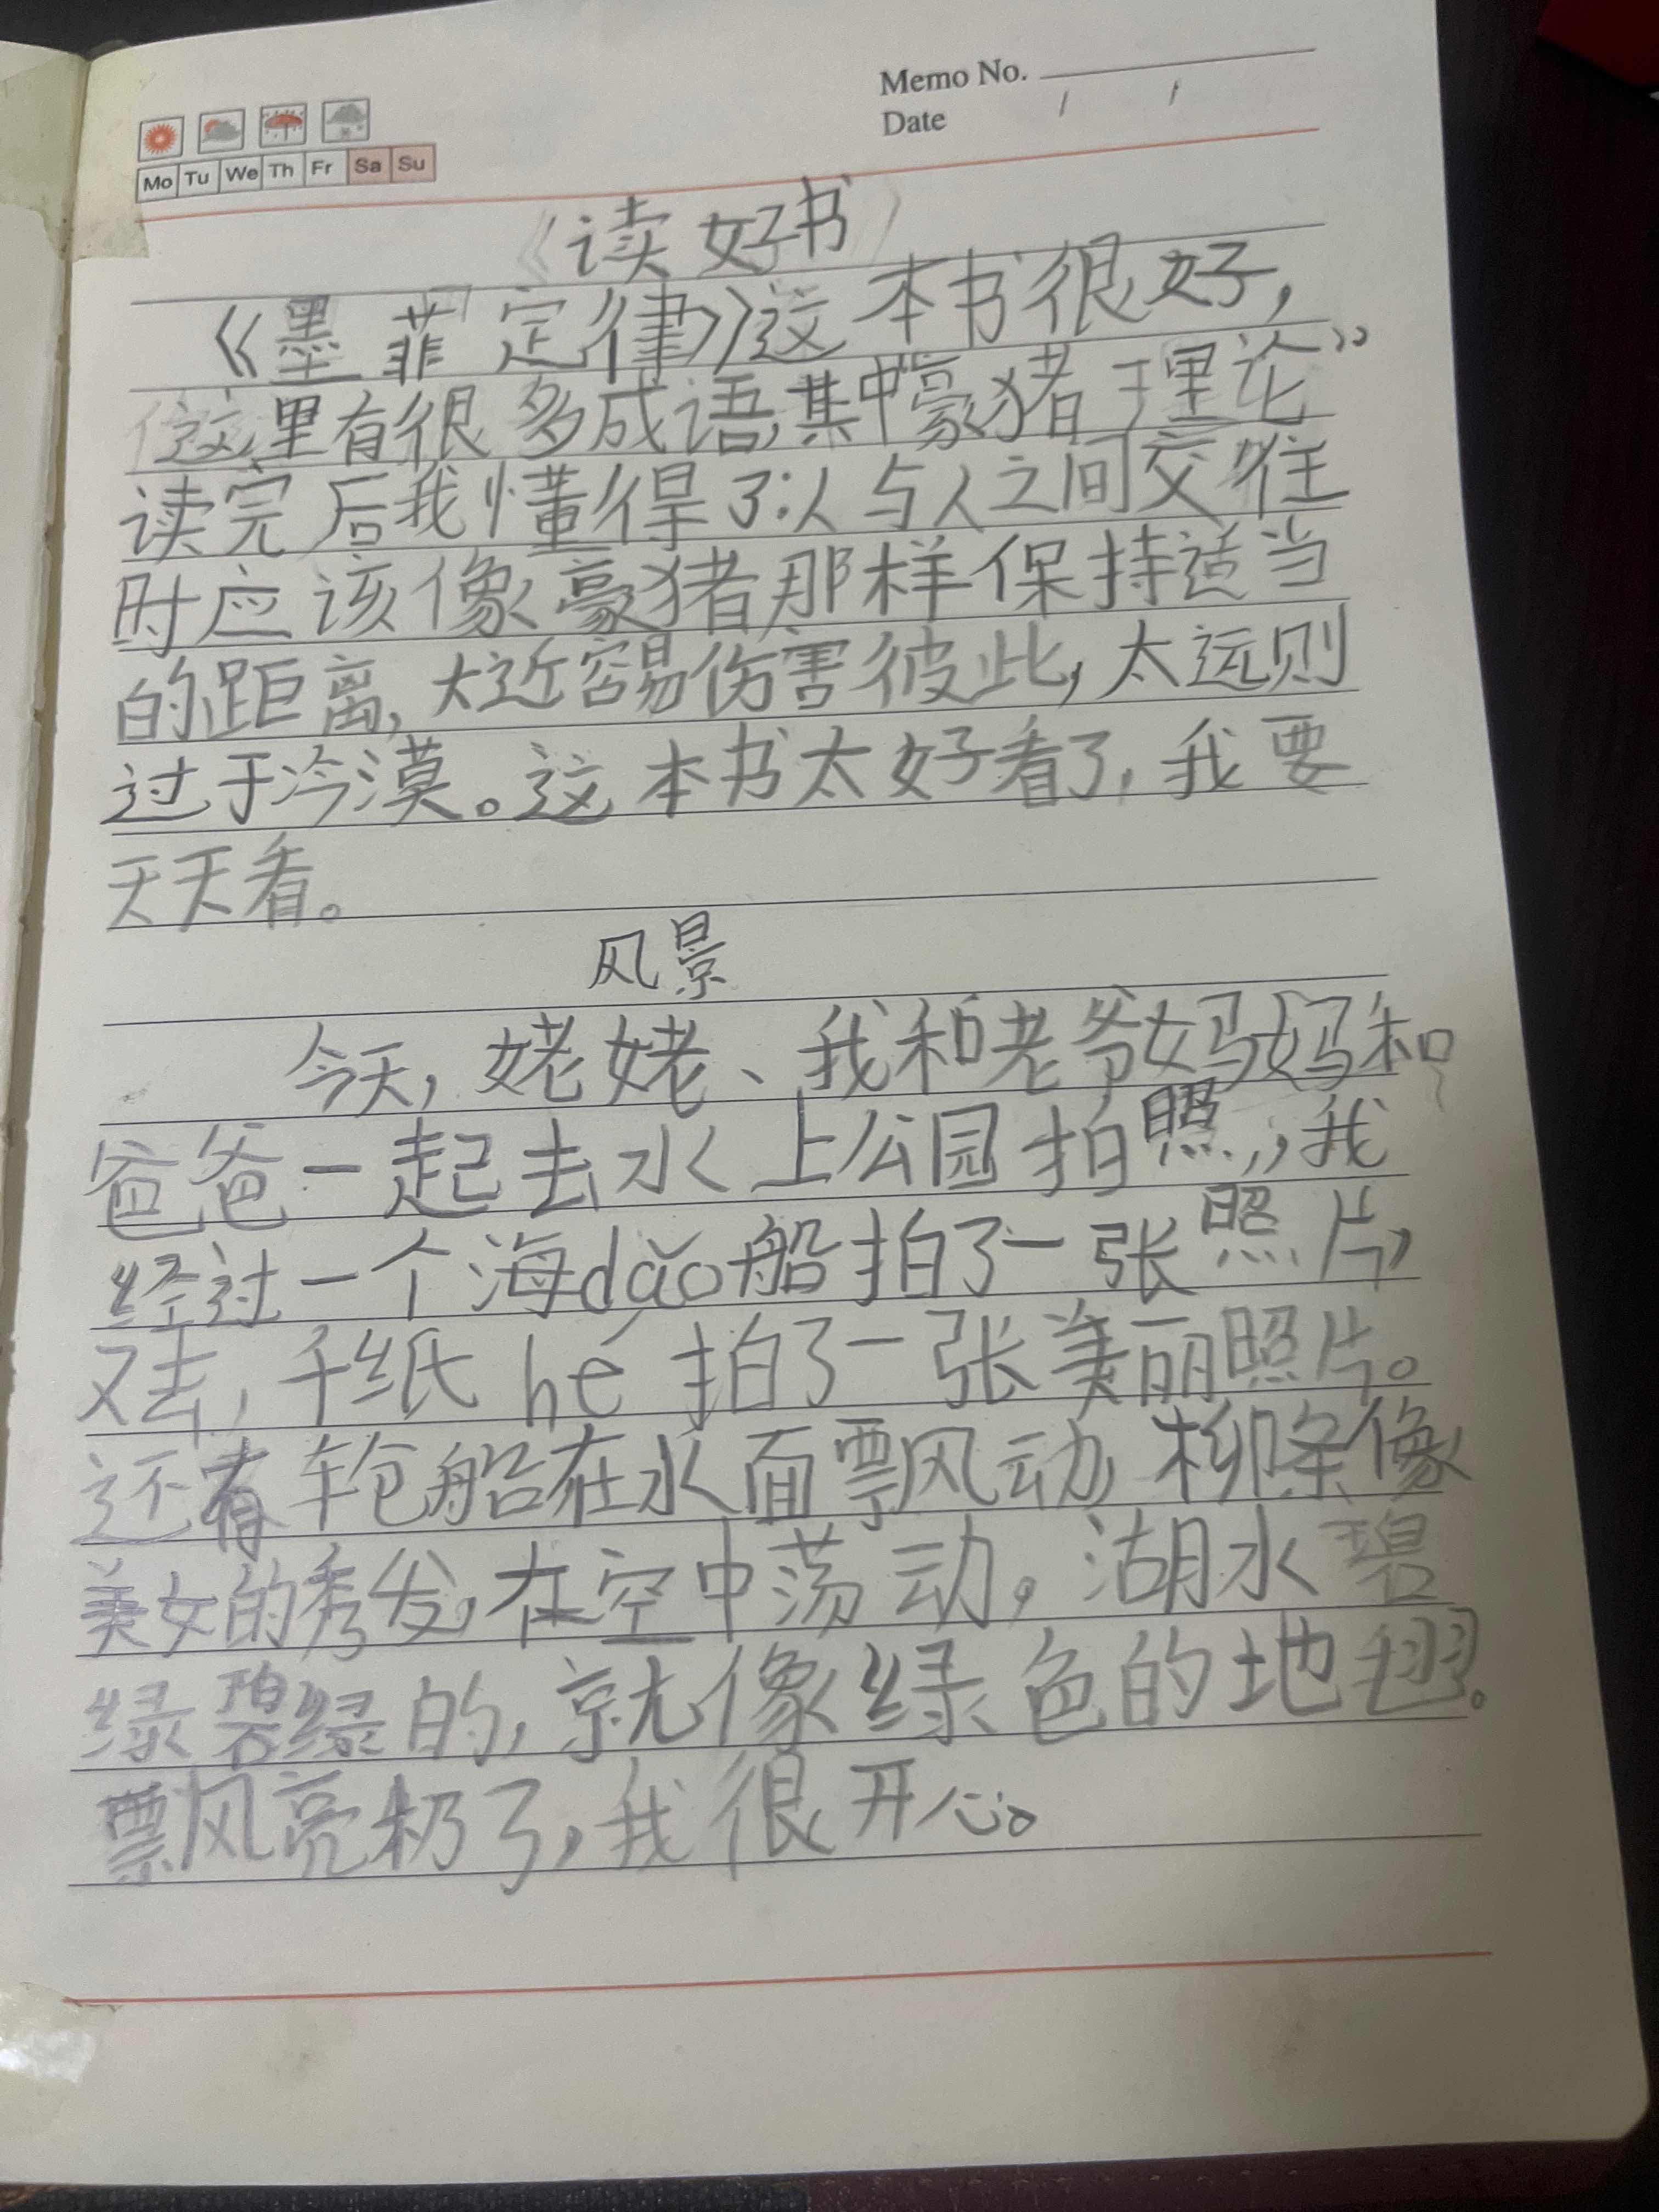 Memo No.
Date / /
Mo Tu We Th Fr Sa Su
《读好书》
《墨菲定律》这本书很好,
这里有很多成语,其中“豪猪理论”
读完后我懂得了:人与人之间交往
时应该像豪猪那样保持适当
的距离,太近容易伤害彼此,太远则
过于冷漠。这本书太好看了,我要
天天看。
风景
今天,姥姥、我和老爷妈妈和
爸爸一起去水上公园拍照,,我
经过一个海dǎo船拍了一张照片,
又去,千纸hé拍了一张美丽照片。
还有轮船在水面飘动,柳条像
美女的秀发,在空中荡动。湖水碧
绿碧绿的,就像绿色的地毯。
飘亮极了,我很开心。